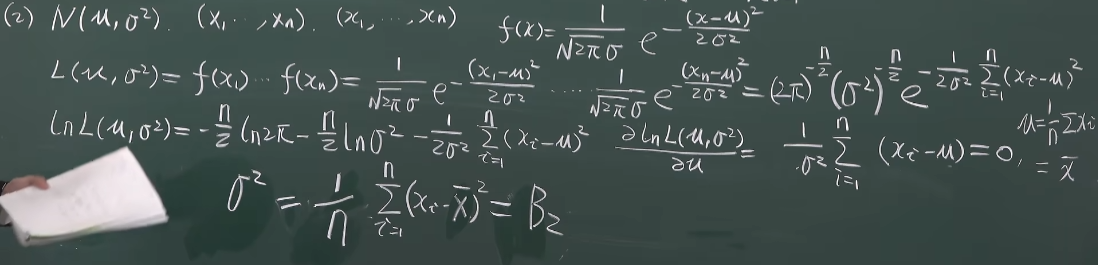 (2) N(μ,σ²). (X₁…,Xₙ). (x₁,…,xₙ) f(x)=1/(√2π σ) e^(-(x-μ)²/(2σ²))
L(μ,σ²)=f(x₁)…f(xₙ)=1/(√2π σ) e^(-(x₁-μ)²/(2σ²)) …… 1/(√2π σ) e^(-(xₙ-μ)²/(2σ²)) =(2π)^(-n/2) (σ²)^(-n/2) e^(-1/(2σ²) Σ_{i=1}^{n}(xᵢ-μ)²)
lnL(μ,σ²)=-n/2 ln2π-n/2 lnσ²-1/(2σ²) Σ_{i=1}^{n}(xᵢ-μ)² ∂lnL(μ,σ²)/∂μ = 1/σ² Σ_{i=1}^{n} (xᵢ-μ)=0, μ=1/n Σxᵢ
= x̄
σ² = 1/n Σ_{i=1}^{n}(xᵢ-x̄)² = B₂